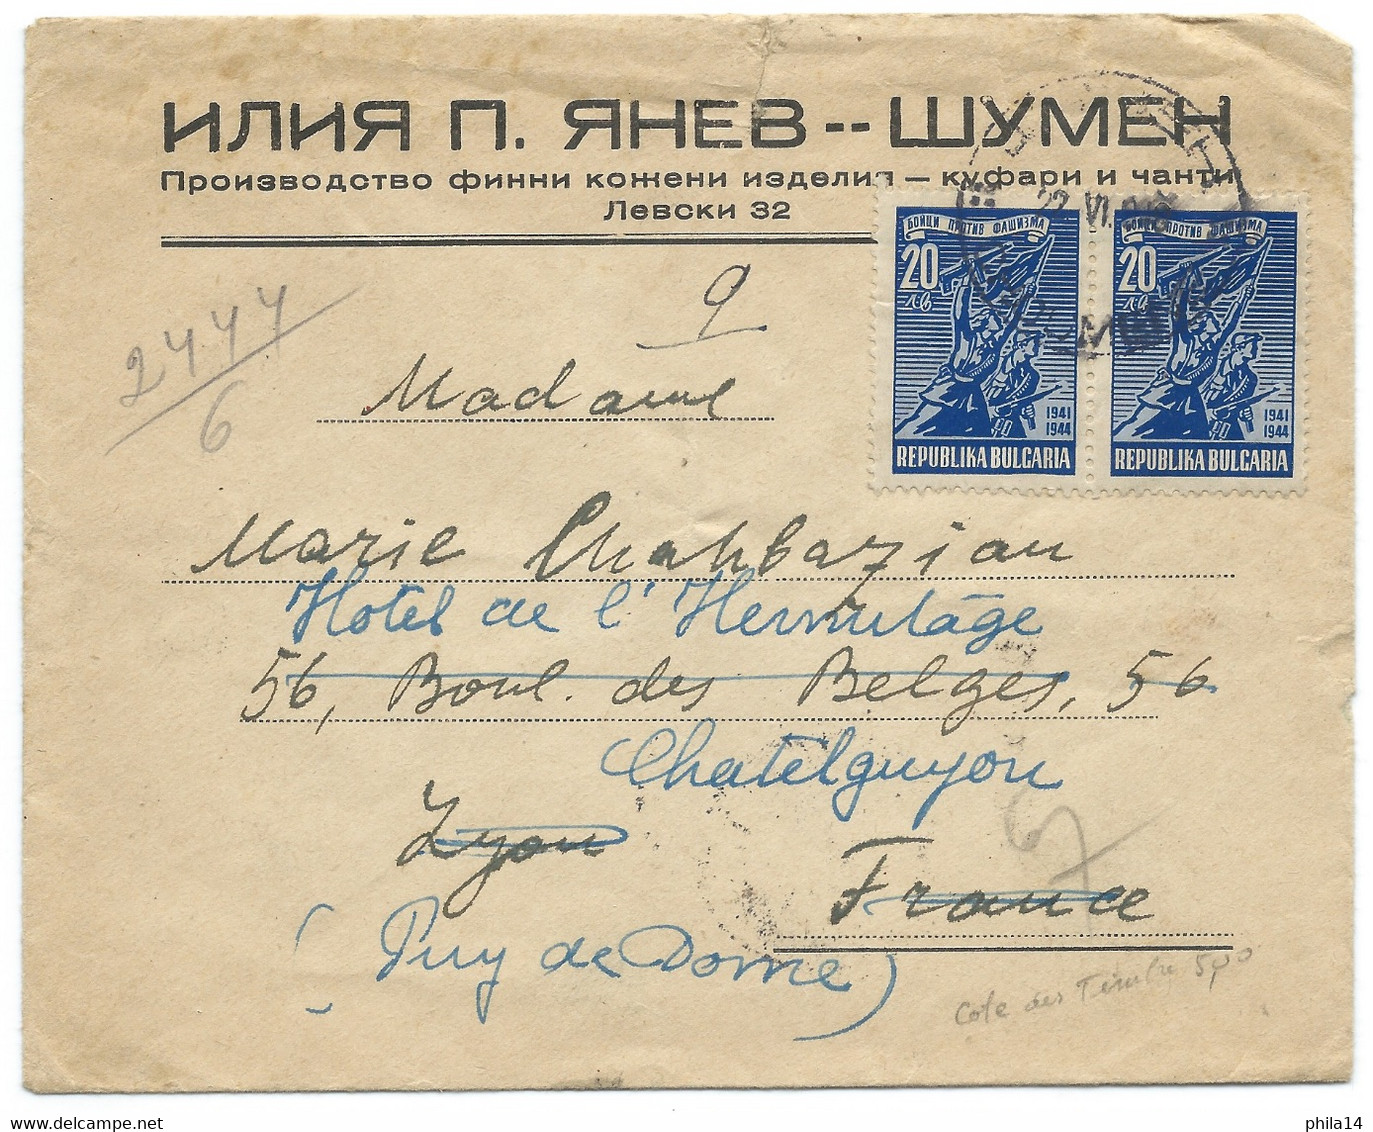 ИЛИЯ П. ЯНЕВ -- ШУМЕН
Производство финни кожени изделия — куфари и чанти
Левски 32
22 VI
БОЙЦИ ПРОТИВ ФАШИЗМА
20
лв
1941
1944
REPUBLIKA BULGARIA
БОЙЦИ ПРОТИВ ФАШИЗМА
20
лв
1941
1944
REPUBLIKA BULGARIA
2444
6
9
Madame
Marie Chahbazian
Hotel de l'Hermitage
56, Boul. des Belges, 56
Chatelguyon
Lyon
France
(Puy de Dome)
Cote des Timbre
phila14